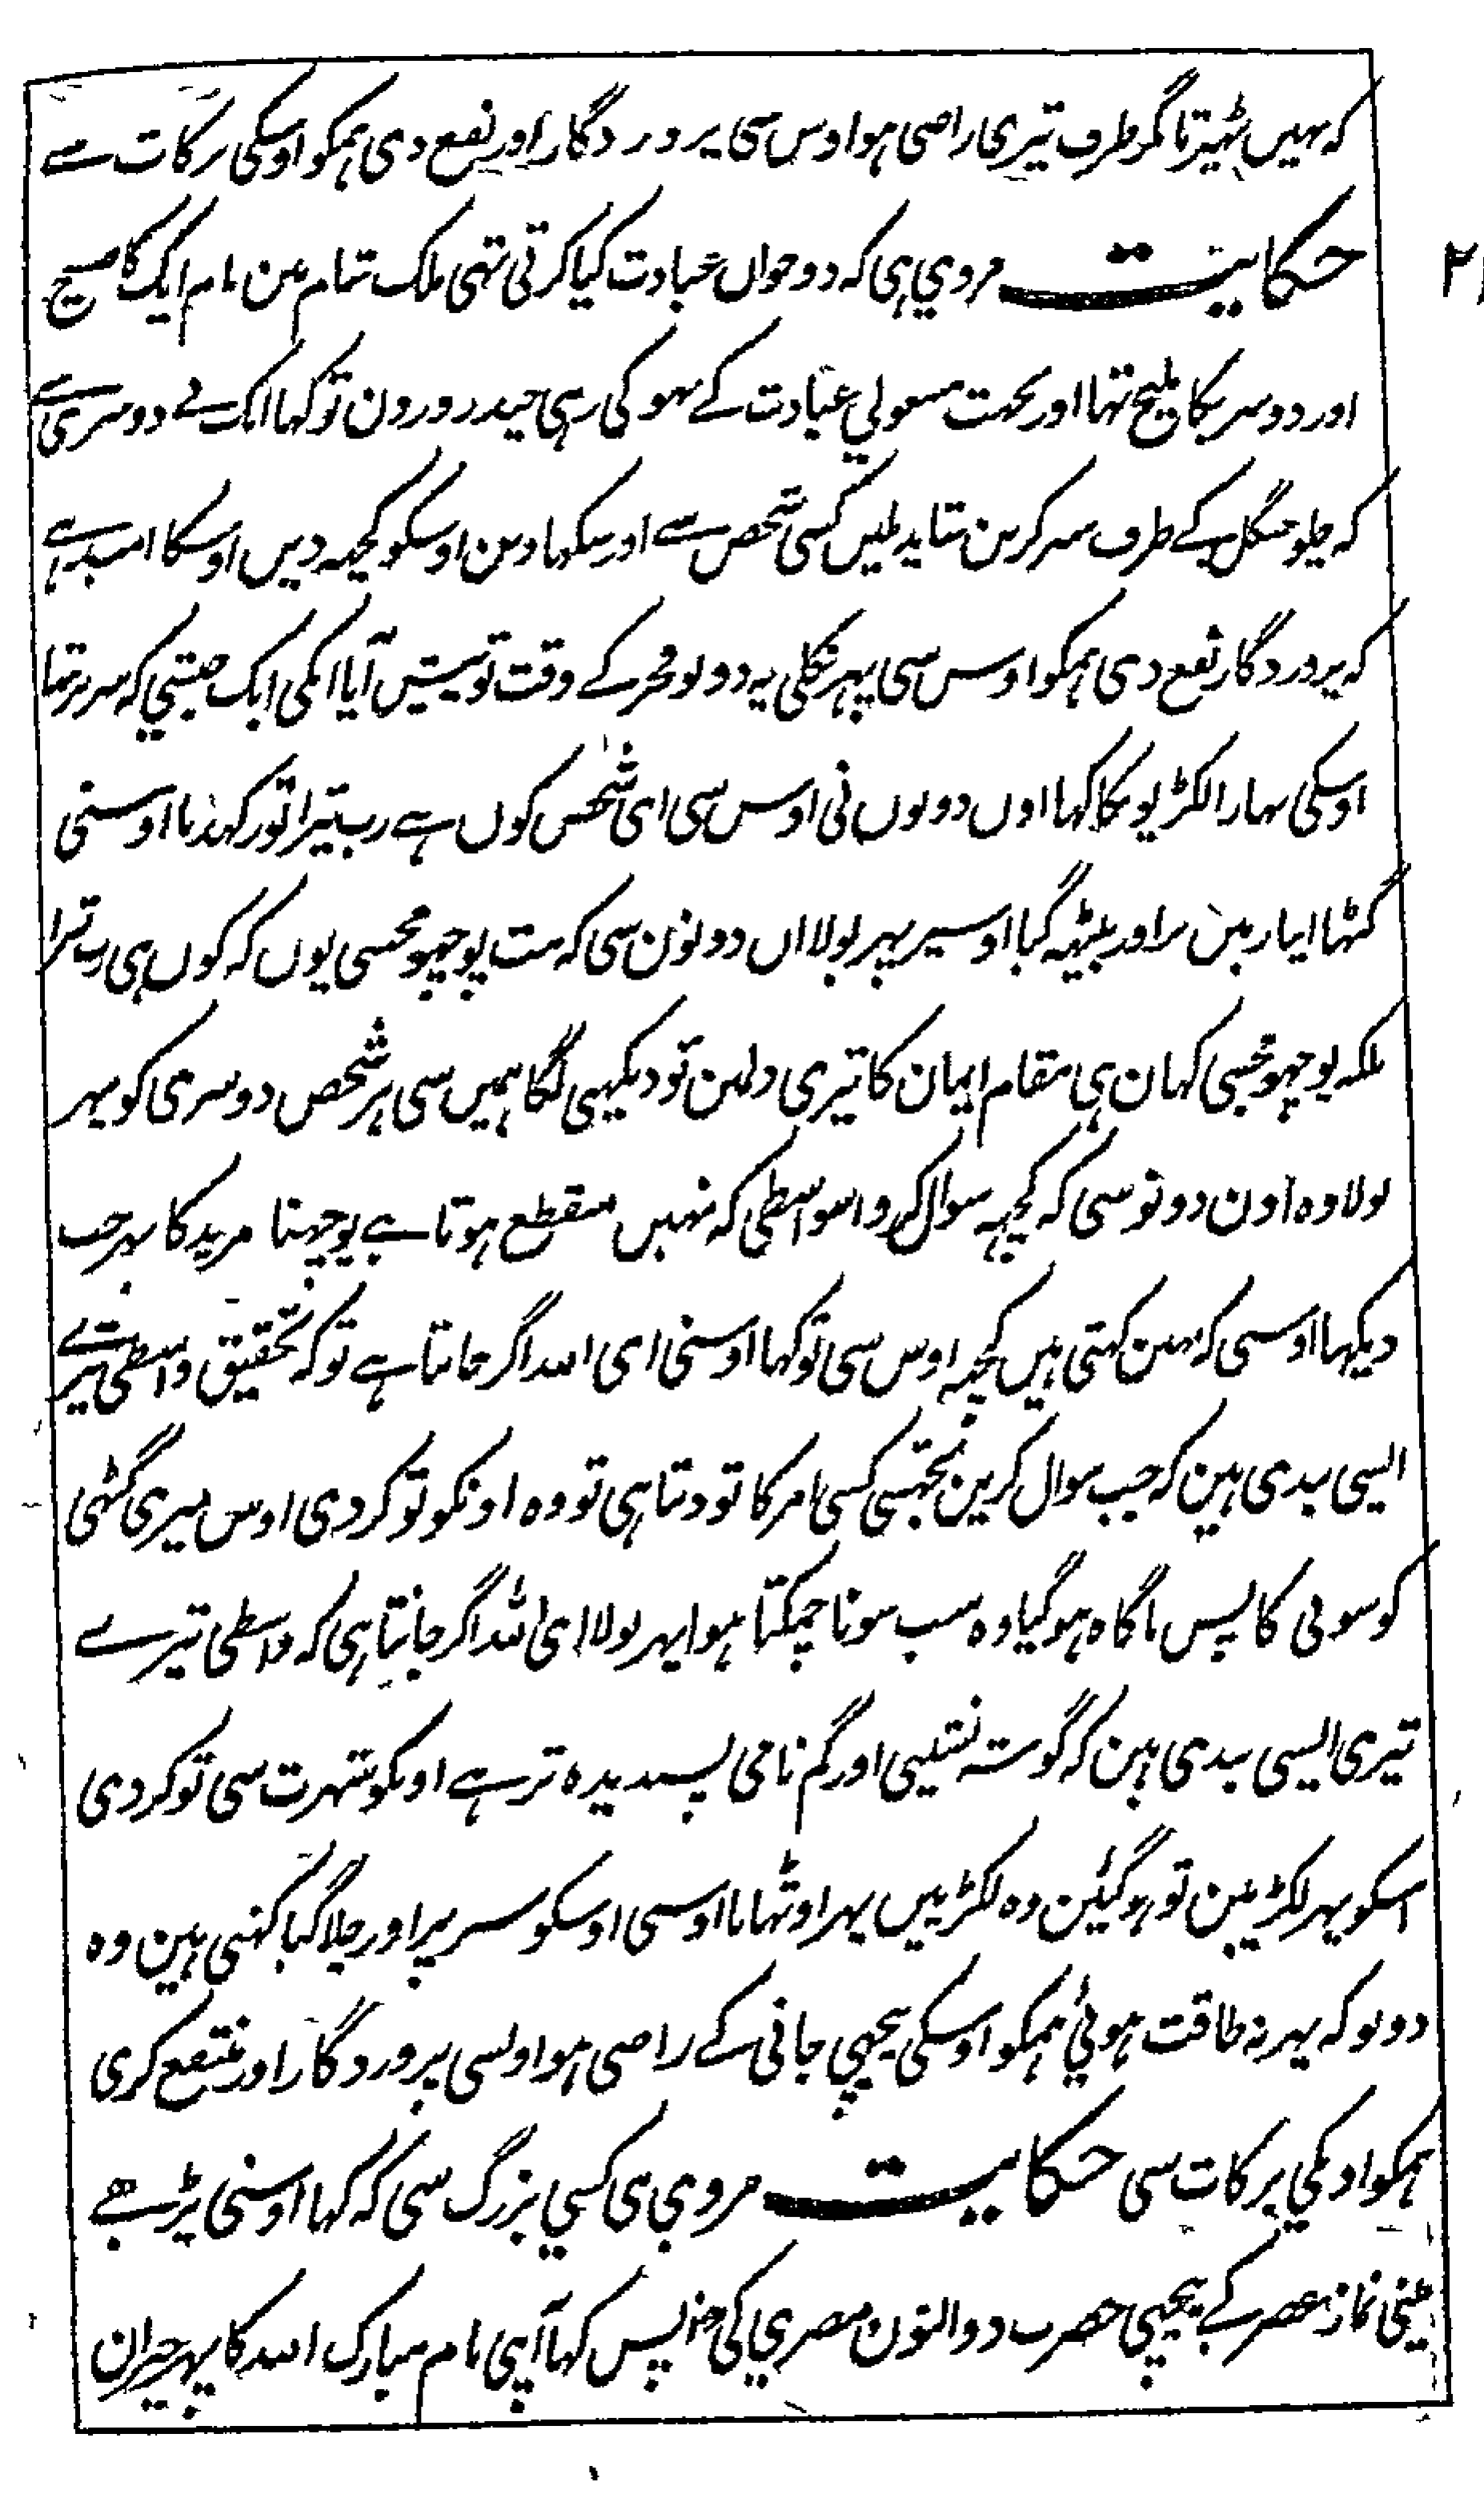 کہ نہیں ٹہیرتا گر طرف تیری راضی ہو اوس سی پروردگار اور نفع دی ہمکو اوسکی برکات سے
۲۱
حکایت مروی ہی کہ دو جوان عبادت کیا کرتی تہی ملک شام مین نام ایک کا صبیح
اور دوسریکا ملیح تہا اور بہت مشغول عبادت کے بہوکی رہی چند روز ون تو کہا ایک نے دوسری سے
کہ چلو جنگل کے طرف سیر کرین شاید ملیں کسی شخص سے اور سکہا دین اوسکو کچہہ دیں اوسکا امید ہے
کہ پروردگار نفع دی ہمکو اوس سی پہر نکلی یہ دونو فجر کے وقت تو پیش آیا انکی ایک حبشی کہ سر پر تہا
اوسکی بہارا لکڑیونکا کہا اون دونوں نی اوس سی ای شخص کون ہے رب تیرا تو رکہدیا اوسنی
گٹہا اپنا زمین پر اور بیٹہہ گیا اوسپر پہر بولا ان دونون سی کہ مت پوچہو مجسی یوں کہ کون ہی رب ترا
بلکہ پوچہو مجسی کہان ہی مقام ایمان کا تیری دلمین تو دیکہنی لگا ہمیں سی ہر شخص دوسری کو پہر
بولا وہ اون دونو سی کہ کچہہ سوال کرو اسواسطی کہ نہیں منقطع ہوتا ہے پوچہنا مرید کا پہر جب
دیکہا اوسی کہ نہین کہتی ہیں کچہہ اوس سی تو کہا اوسنی ای اللہ اگر جانتا ہے تو کہ تحقیق واسطی تیرے
ایسی بندی ہین کہ جب سوال کرین تجہسی کسی امر کا تو دیتا ہی تو وہ اونکو تو کر دی اوس میری گٹہی
کو سونی کا پس ناگاہ ہو گیا وہ سب سونا چمکتا ہوا پہر بولا ای اللہ اگر جانتا ہی کہ واسطی تیرے
تیری ایسی بندی ہین کہ گوشہ نشینی اور گم نامی پسندیدہ تر ہے اونکو شہرت سی تو کر دی
اسکو پہر لکڑیین تو ہو گیئن وہ لکڑییں پہر اوٹہایا اوسی اوسکو سر پر اور چلا گیا کہتی ہین وہ
دونو کہ پہر نہ طاقت ہوئی ہمکو اوسکی پیچہی جانی کے راضی ہو اوسی پروردگار اور منتفع کری
ہمکو اونکی برکات سی حکایت مروی ہی کسی بزرگ سی کہ کہا اوسنی پڑہے
مینی نماز عصر کے پیچہی حضرت ذوالنون مصری کی پس کہا آپنی نام مبارک اللہ کا پہر حیران